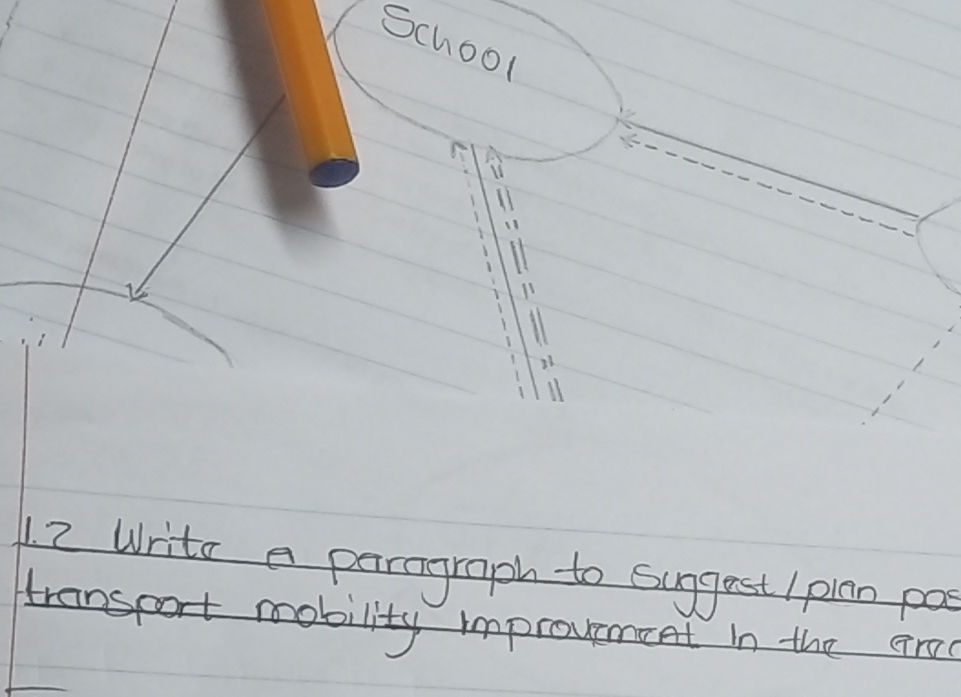 School
1.2 Write a paragraph to suggest/plan pos
transport mobility improvement in the area